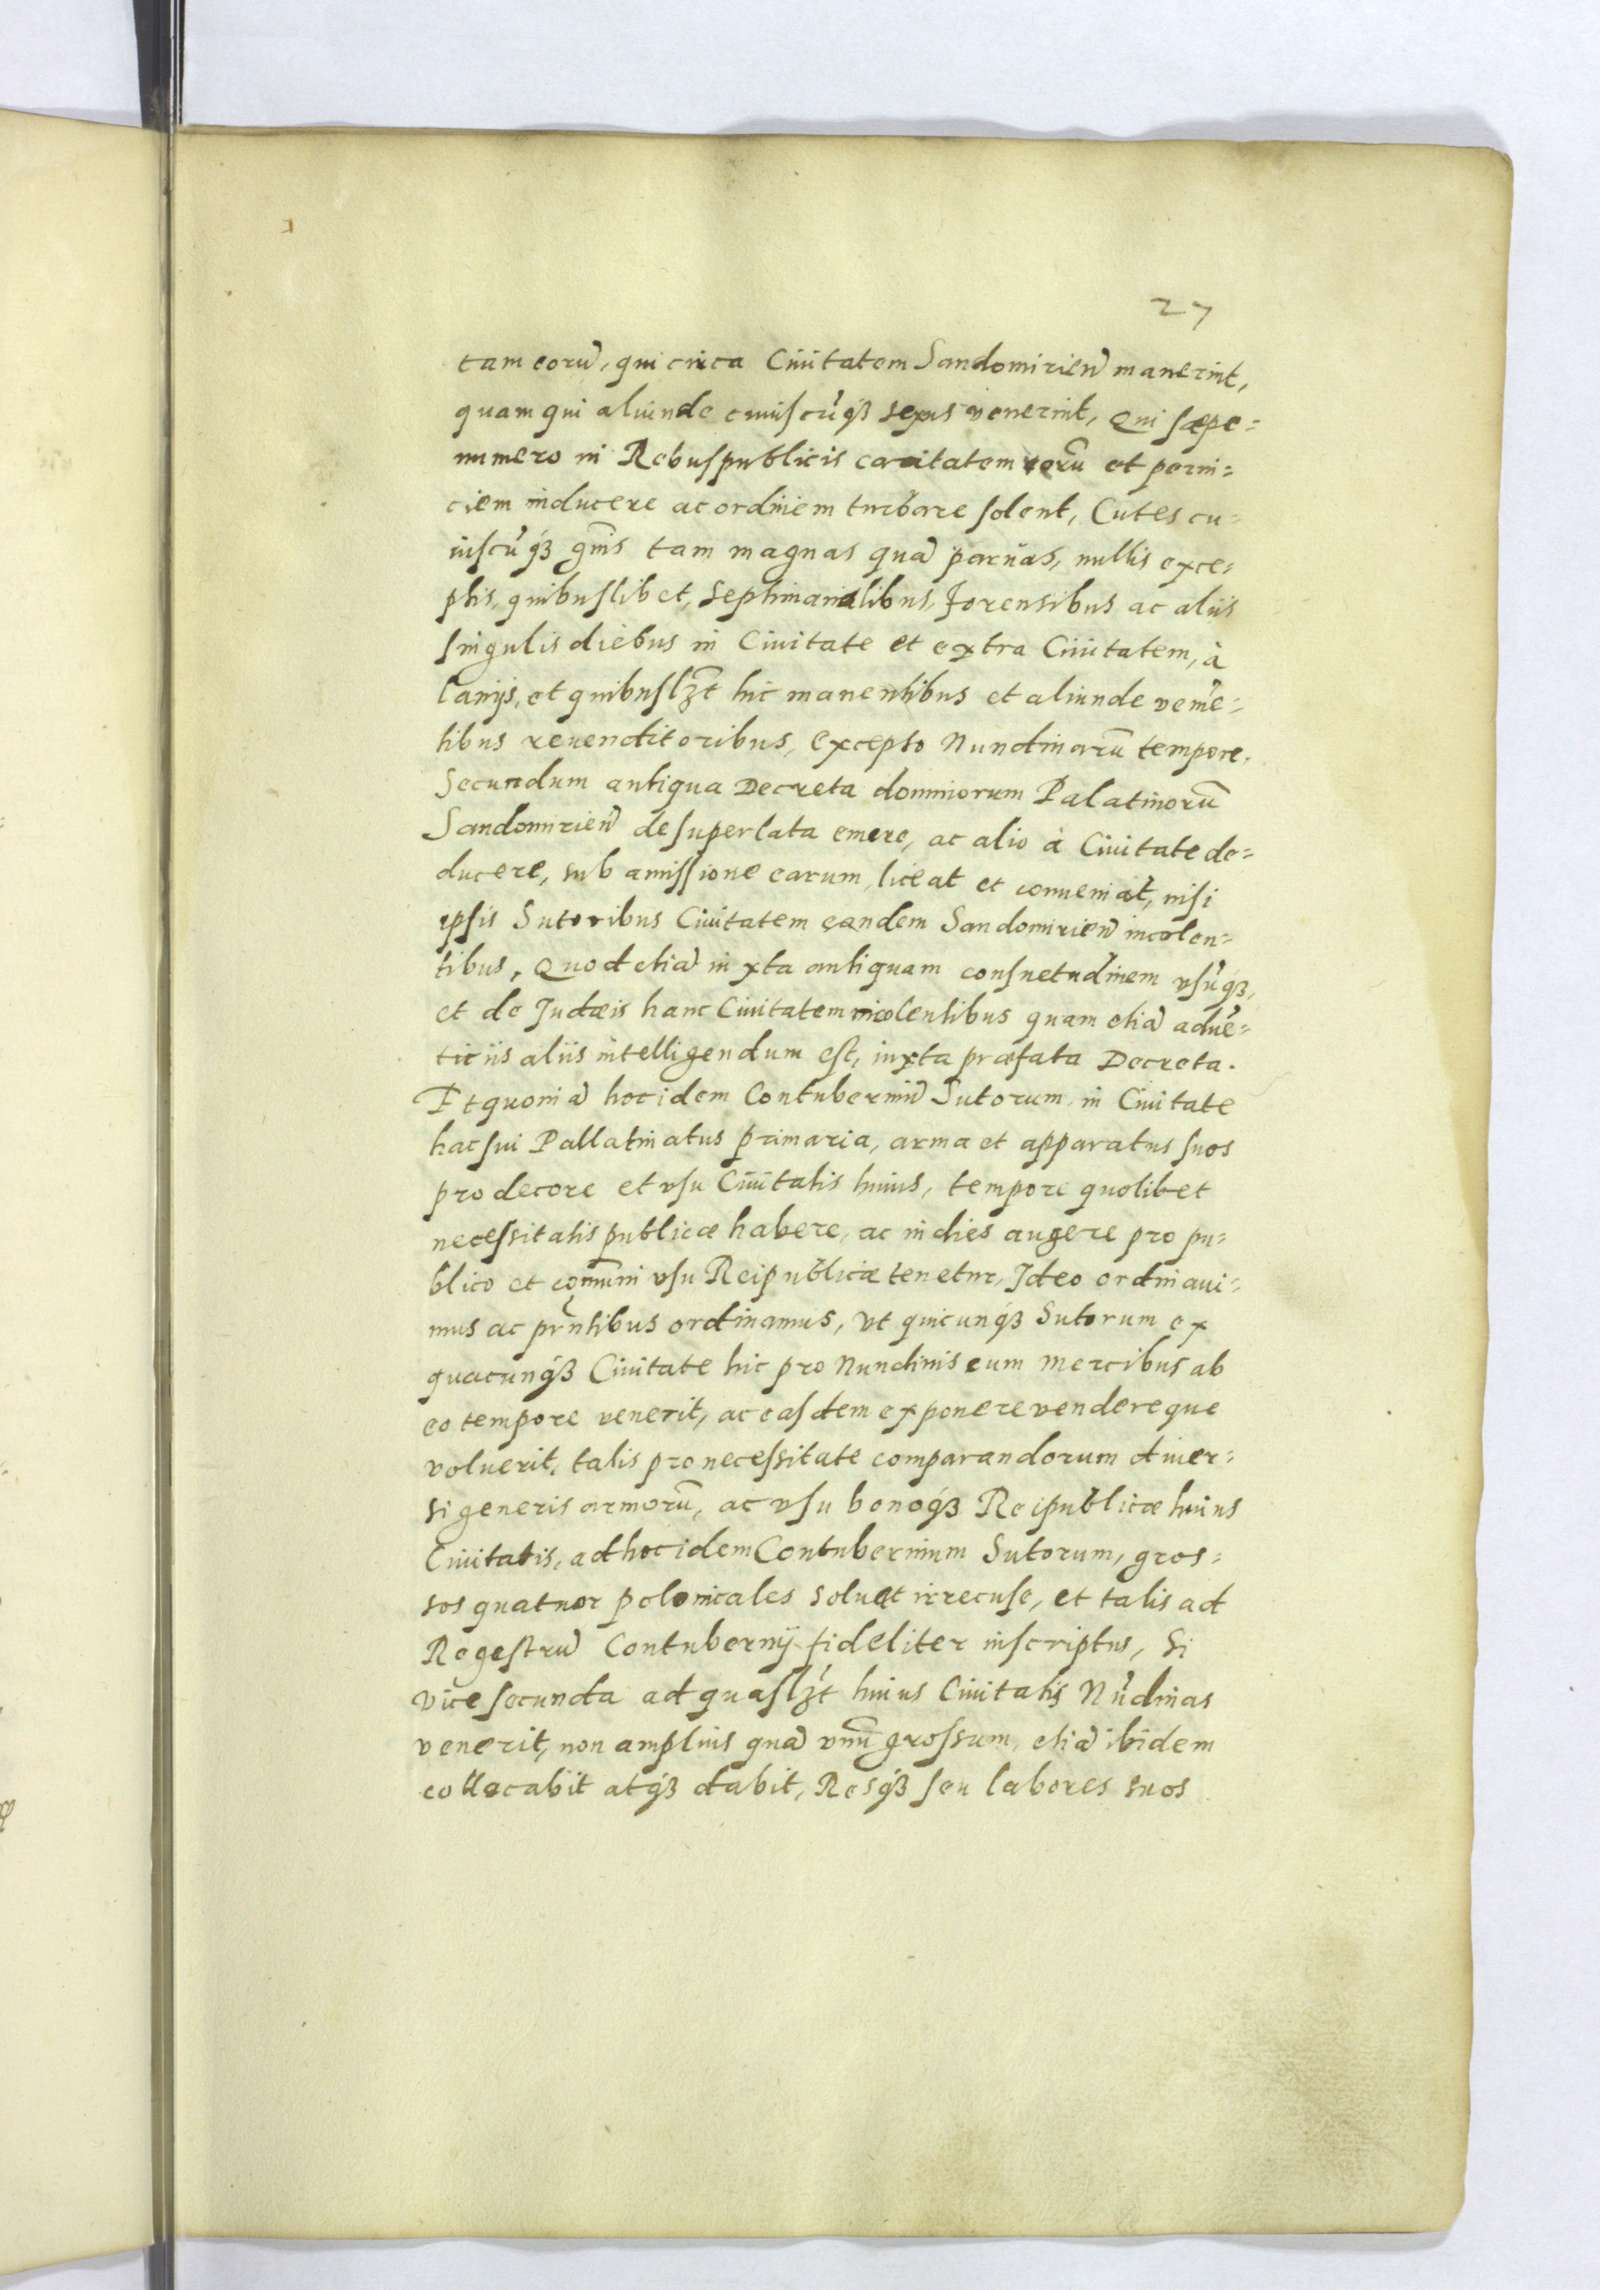 27
tam eorū, qui circa Ciuitatem Sandomirien̄ manerint,
quam qui aliunde cuiuscūqȝ sexus venerint, Qui sæpe=
numero in Rebuspublicis caritatem rerū et perni=
ciem inducere ac ordinem turbare solent, Cutes cu=
iuscūqȝ gn̄is tam magnas quā paruas, nullis exce=
ptis, quibuslibet, septimanalibus, forensibus ac aliis
singulis diebus in Ciuitate et extra Ciuitatem, à
lanijs, et quibuslȝt hic manentibus et aliunde venie=
tibus reuenditoribus, excepto Nundinarū tempore.
Secundum antiqua Decreta dominorum Palatinorū
Sandomirien̄ desuper lata emere, ac alio à Ciuitate de=
ducere, sub amissione earum, liceat et conueniat, nisi
ipsis Sutoribus Ciuitatem eandem Sandomirien̄ incolen=
tibus, Quod etiā iuxta antiquam consuetudinem vsūqȝ,
et de Judæis hanc Ciuitatem incolentibus quam etiā aduē=
ticiis aliis intelligendum est, iuxta præfata Decreta.
Et quoniā hoc idem Contuberniū Sutorum in Ciuitate
hac sui Pallatinatus primaria, arma et apparatus suos
pro decore et vsu Ciuitatis huius, tempore quolibet
necessitatis publicæ habere, ac in dies augere pro pu=
blico et com̄uni vsu Reipublicæ tenetur, Ideo ordinaui=
mus ac pn̄tibus ordinamus, vt quicunqȝ Sutorum ex
quacunqȝ Ciuitate hic pro Nundinis cum mercibus ab
eo tempore venerit, ac easdem exponere vendereque
voluerit, talis pro necessitate comparandorum diuer=
si generis armorū, ac vsu bonoqȝ Reipublicæ huius
Ciuitatis, ad hoc idem Contubernium Sutorum, gros=
sos quatuor polonicales soluet irrecuse, et talis ad
Regestrū Contubernij fideliter inscriptus, si
vice secunda ad quaslȝt huius Ciuitatis Nūdinas
venerit, non amplius quā vnū grossum, etiā ibidem
collocabit atqȝ dabit, Resqȝ seu labores suos